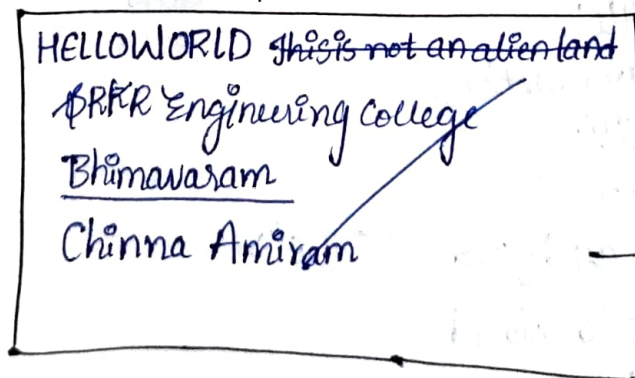 HELLOWORLD Thisis not an alien land
SRKR Engineering College
Bhimavaram
Chinna Amiram